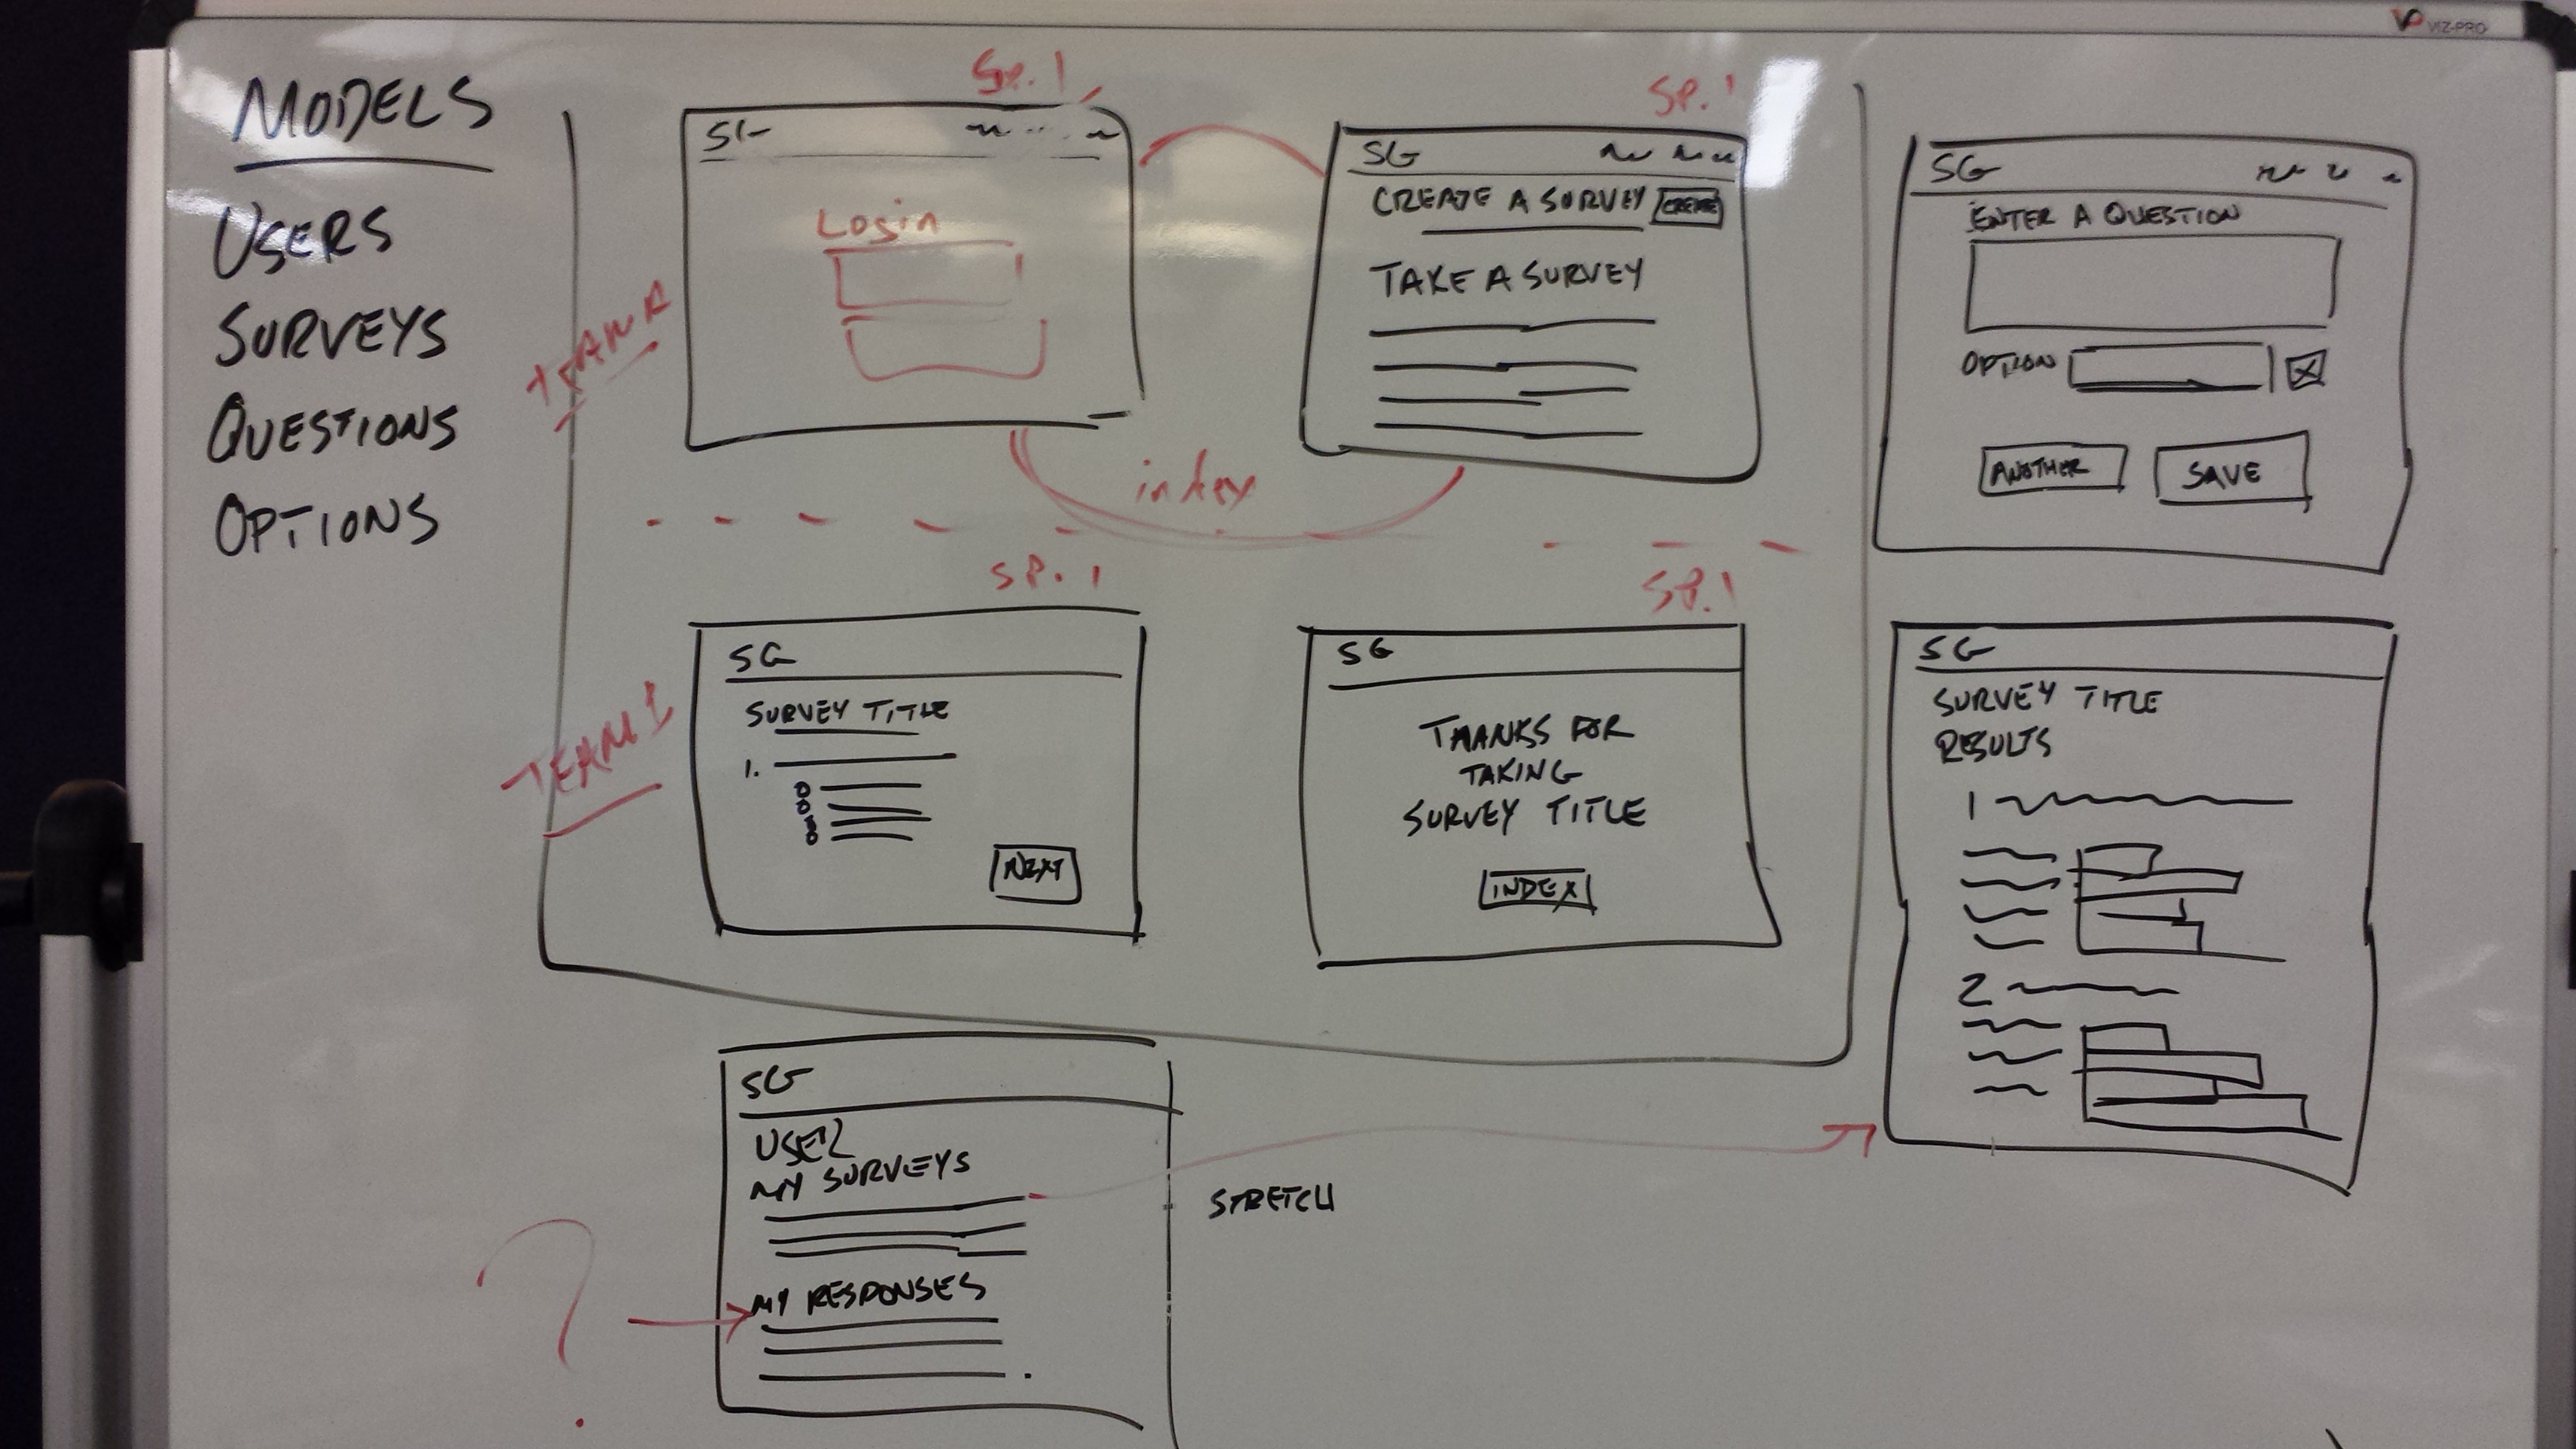 VIZ-PRO
MODELS
USERS
SURVEYS
QUESTIONS
OPTIONS
Sp. 1
SG
Login
SP. 1
SG
CREATE A SURVEY
CREATE
TAKE A SURVEY
index
SG
ENTER A QUESTION
OPTION
X
ANOTHER
SAVE
TEAM 1
SP. 1
SG
SURVEY TITLE
1.
NEXT
SP. 1
SG
THANKS FOR
TAKING
SURVEY TITLE
INDEX
SG
SURVEY TITLE
RESULTS
1
2
SG
USER
MY SURVEYS
MY RESPONSES
STRETCH
?